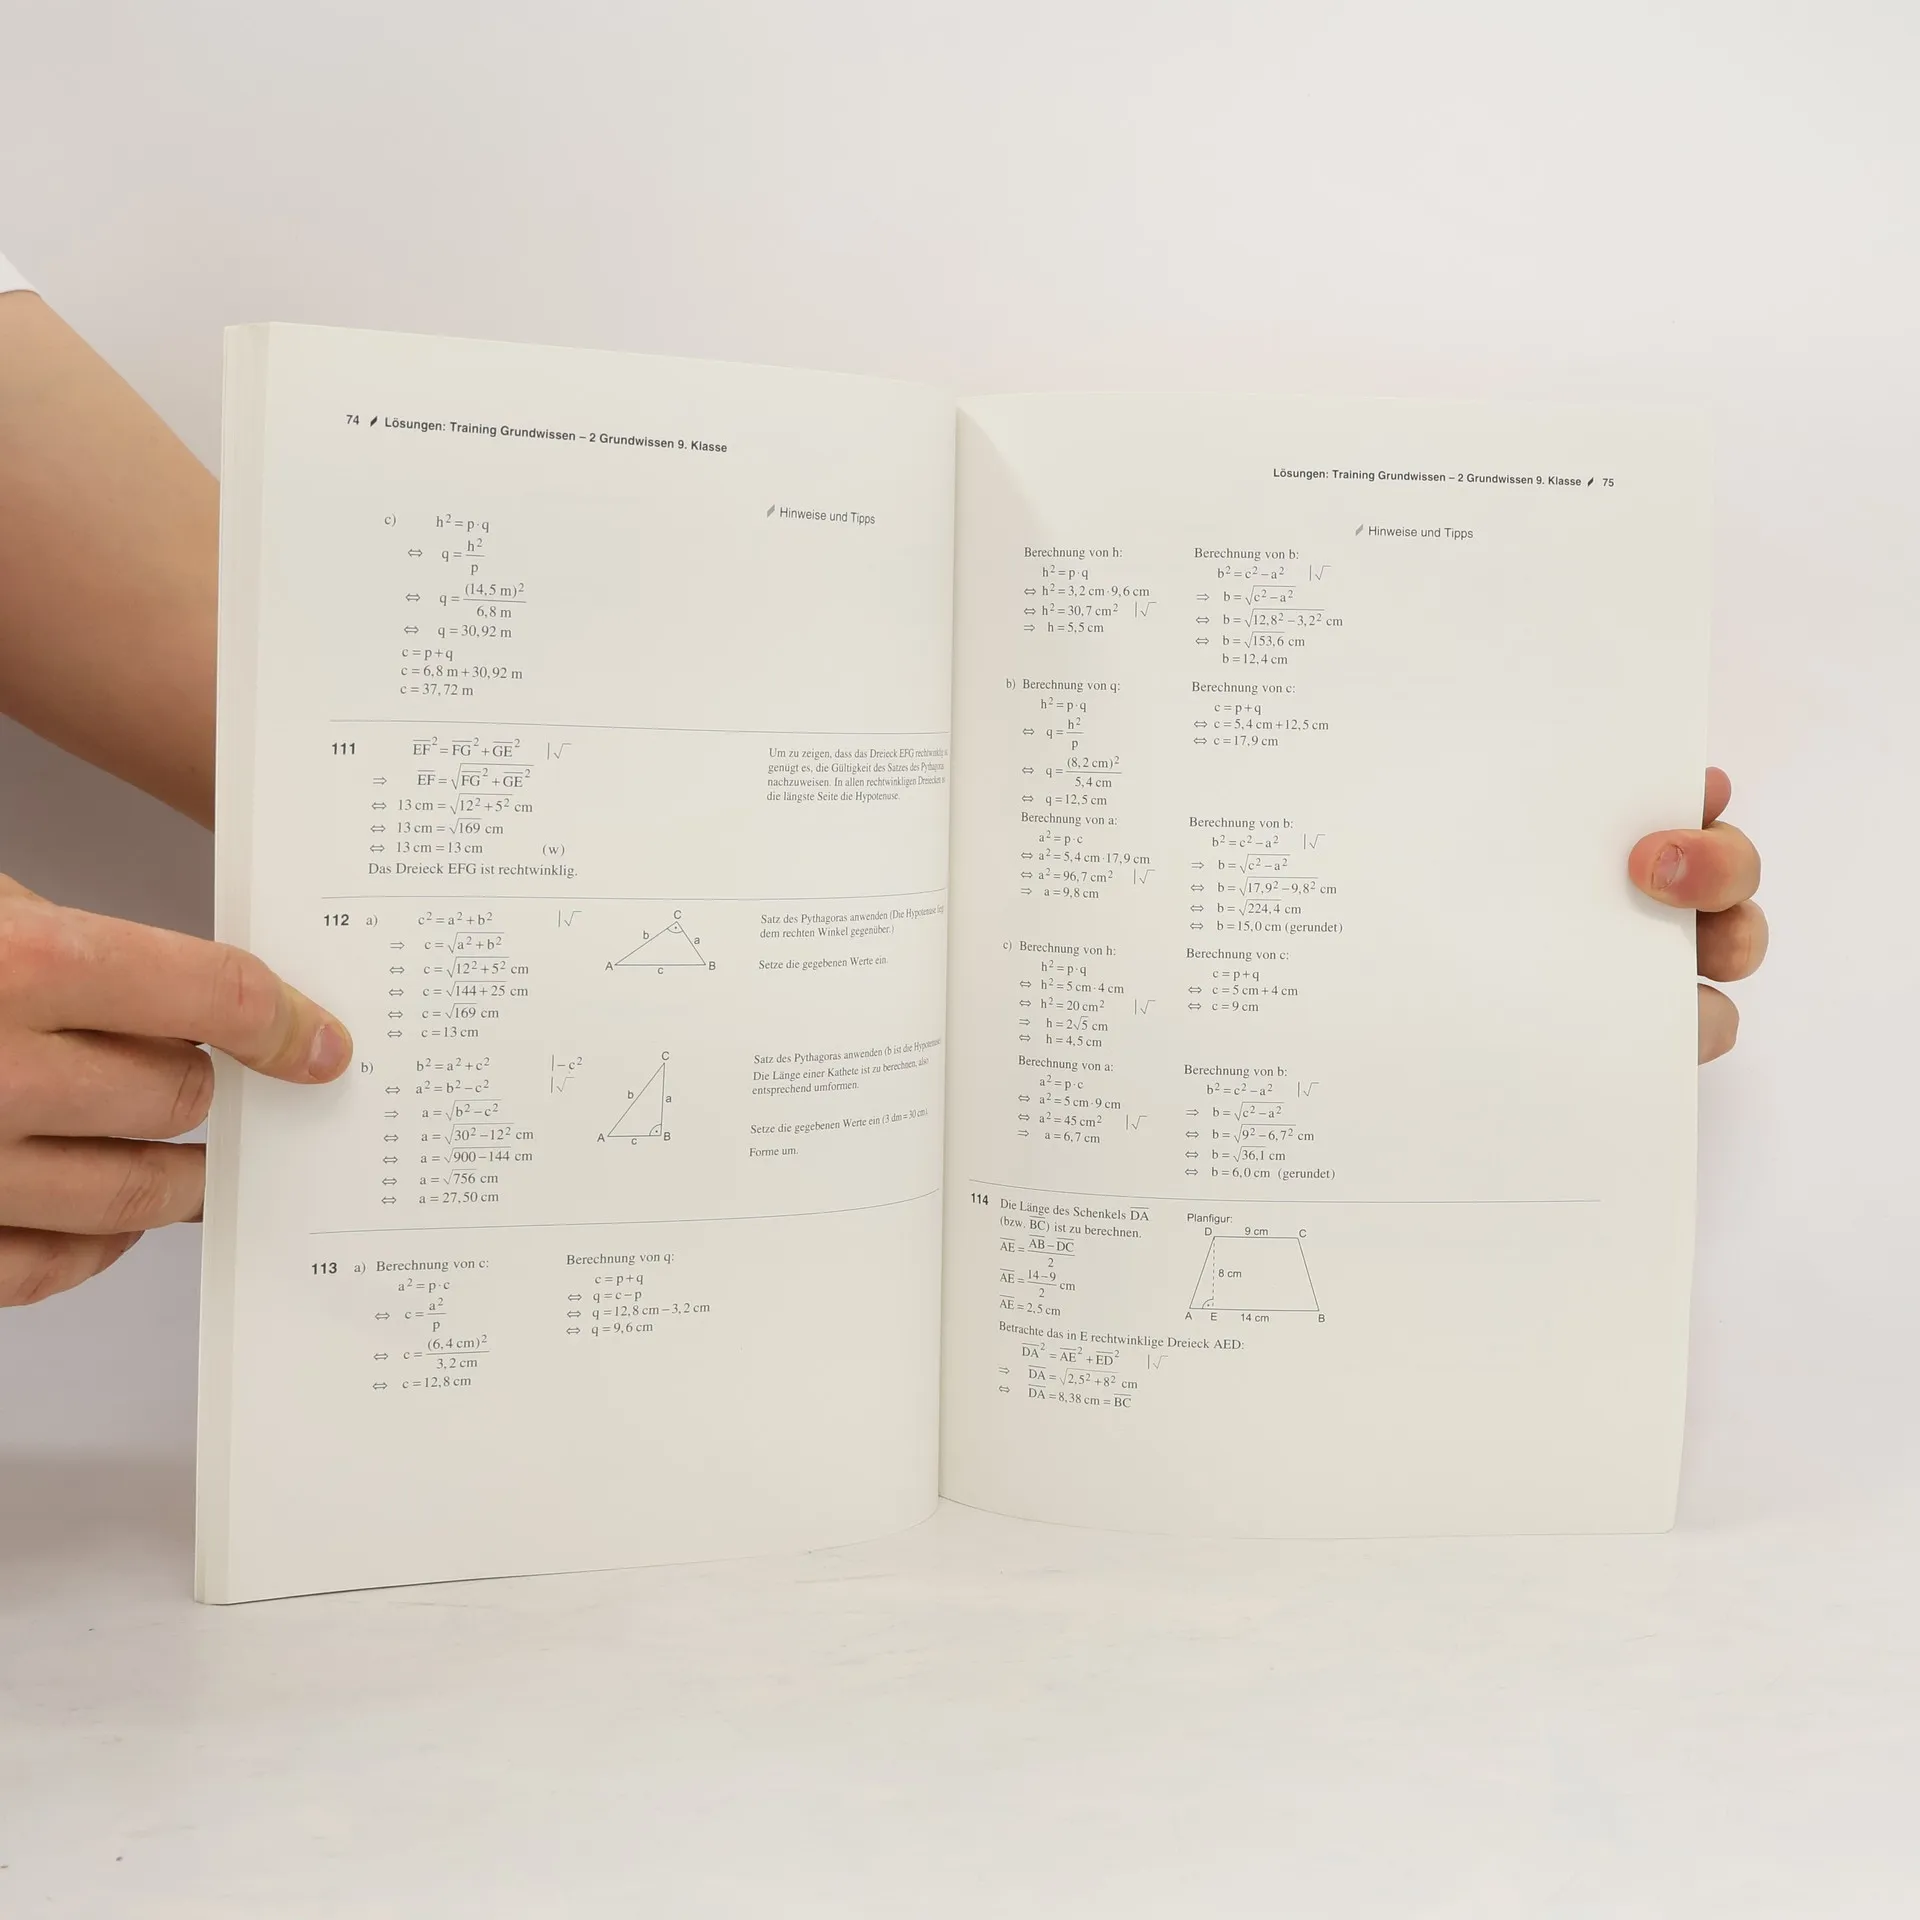 74 Lösungen: Training Grundwissen – 2 Grundwissen 9. Klasse
Hinweise und Tipps
c) h² = p · q
⇔ q = h²/p
⇔ q = (14,5 m)²/6,8 m
⇔ q = 30,92 m
c = p + q
c = 6,8 m + 30,92 m
c = 37,72 m
111 EF² = FG² + GE² |√
⇒ EF = √(FG² + GE²)
⇔ 13 cm = √(12² + 5²) cm
⇔ 13 cm = √169 cm
⇔ 13 cm = 13 cm (w)
Das Dreieck EFG ist rechtwinklig.
Um zu zeigen, dass das Dreieck EFG rechtwinklig
genügt es, die Gültigkeit des Satzes des Pythagoras
nachzuweisen. In allen rechtwinkligen Dreiecken
die längste Seite die Hypotenuse.
112 a) c² = a² + b² |√
⇒ c = √(a² + b²)
⇔ c = √(12² + 5²) cm
⇔ c = √(144 + 25) cm
⇔ c = √169 cm
⇔ c = 13 cm
C
b
a
A
c
B
Satz des Pythagoras anwenden (Die Hypotenuse
dem rechten Winkel gegenüber.)
Setze die gegebenen Werte ein.
b) b² = a² + c² |– c²
⇔ a² = b² – c² |√
⇒ a = √(b² – c²)
⇔ a = √(30² – 12²) cm
⇔ a = √(900 – 144) cm
⇔ a = √756 cm
⇔ a = 27,50 cm
C
b
a
A
c
B
Satz des Pythagoras anwenden (b ist die Hypotenuse
Die Länge einer Kathete ist zu berechnen, also
entsprechend umformen.
Setze die gegebenen Werte ein (3 dm = 30 cm).
Forme um.
113 a) Berechnung von c:
a² = p · c
⇔ c = a²/p
⇔ c = (6,4 cm)²/3,2 cm
⇔ c = 12,8 cm
Berechnung von q:
c = p + q
⇔ q = c – p
⇔ q = 12,8 cm – 3,2 cm
⇔ q = 9,6 cm
Lösungen: Training Grundwissen – 2 Grundwissen 9. Klasse 75
Hinweise und Tipps
Berechnung von h:
h² = p · q
⇔ h² = 3,2 cm · 9,6 cm
⇔ h² = 30,7 cm² |√
⇒ h = 5,5 cm
Berechnung von b:
b² = c² – a² |√
⇒ b = √(c² – a²)
⇔ b = √(12,8² – 3,2²) cm
⇔ b = √153,6 cm
b = 12,4 cm
b) Berechnung von q:
h² = p · q
⇔ q = h²/p
⇔ q = (8,2 cm)²/5,4 cm
⇔ q = 12,5 cm
Berechnung von c:
c = p + q
⇔ c = 5,4 cm + 12,5 cm
⇔ c = 17,9 cm
Berechnung von a:
a² = p · c
⇔ a² = 5,4 cm · 17,9 cm
⇔ a² = 96,7 cm² |√
⇒ a = 9,8 cm
Berechnung von b:
b² = c² – a² |√
⇒ b = √(c² – a²)
⇔ b = √(17,9² – 9,8²) cm
⇔ b = √224,4 cm
⇔ b = 15,0 cm (gerundet)
c) Berechnung von h:
h² = p · q
⇔ h² = 5 cm · 4 cm
⇔ h² = 20 cm² |√
⇒ h = 2√5 cm
⇔ h = 4,5 cm
Berechnung von c:
c = p + q
⇔ c = 5 cm + 4 cm
⇔ c = 9 cm
Berechnung von a:
a² = p · c
⇔ a² = 5 cm · 9 cm
⇔ a² = 45 cm² |√
⇒ a = 6,7 cm
Berechnung von b:
b² = c² – a² |√
⇒ b = √(c² – a²)
⇔ b = √(9² – 6,7²) cm
⇔ b = √36,1 cm
⇔ b = 6,0 cm (gerundet)
114 Die Länge des Schenkels DA
(bzw. BC) ist zu berechnen.
AE = (AB – DC)/2
AE = (14 – 9)/2 cm
AE = 2,5 cm
Planfigur:
D 9 cm C
8 cm
A E 14 cm B
Betrachte das in E rechtwinklige Dreieck AED:
DA² = AE² + ED² |√
⇒ DA = √(2,5² + 8²) cm
⇔ DA = 8,38 cm = BC